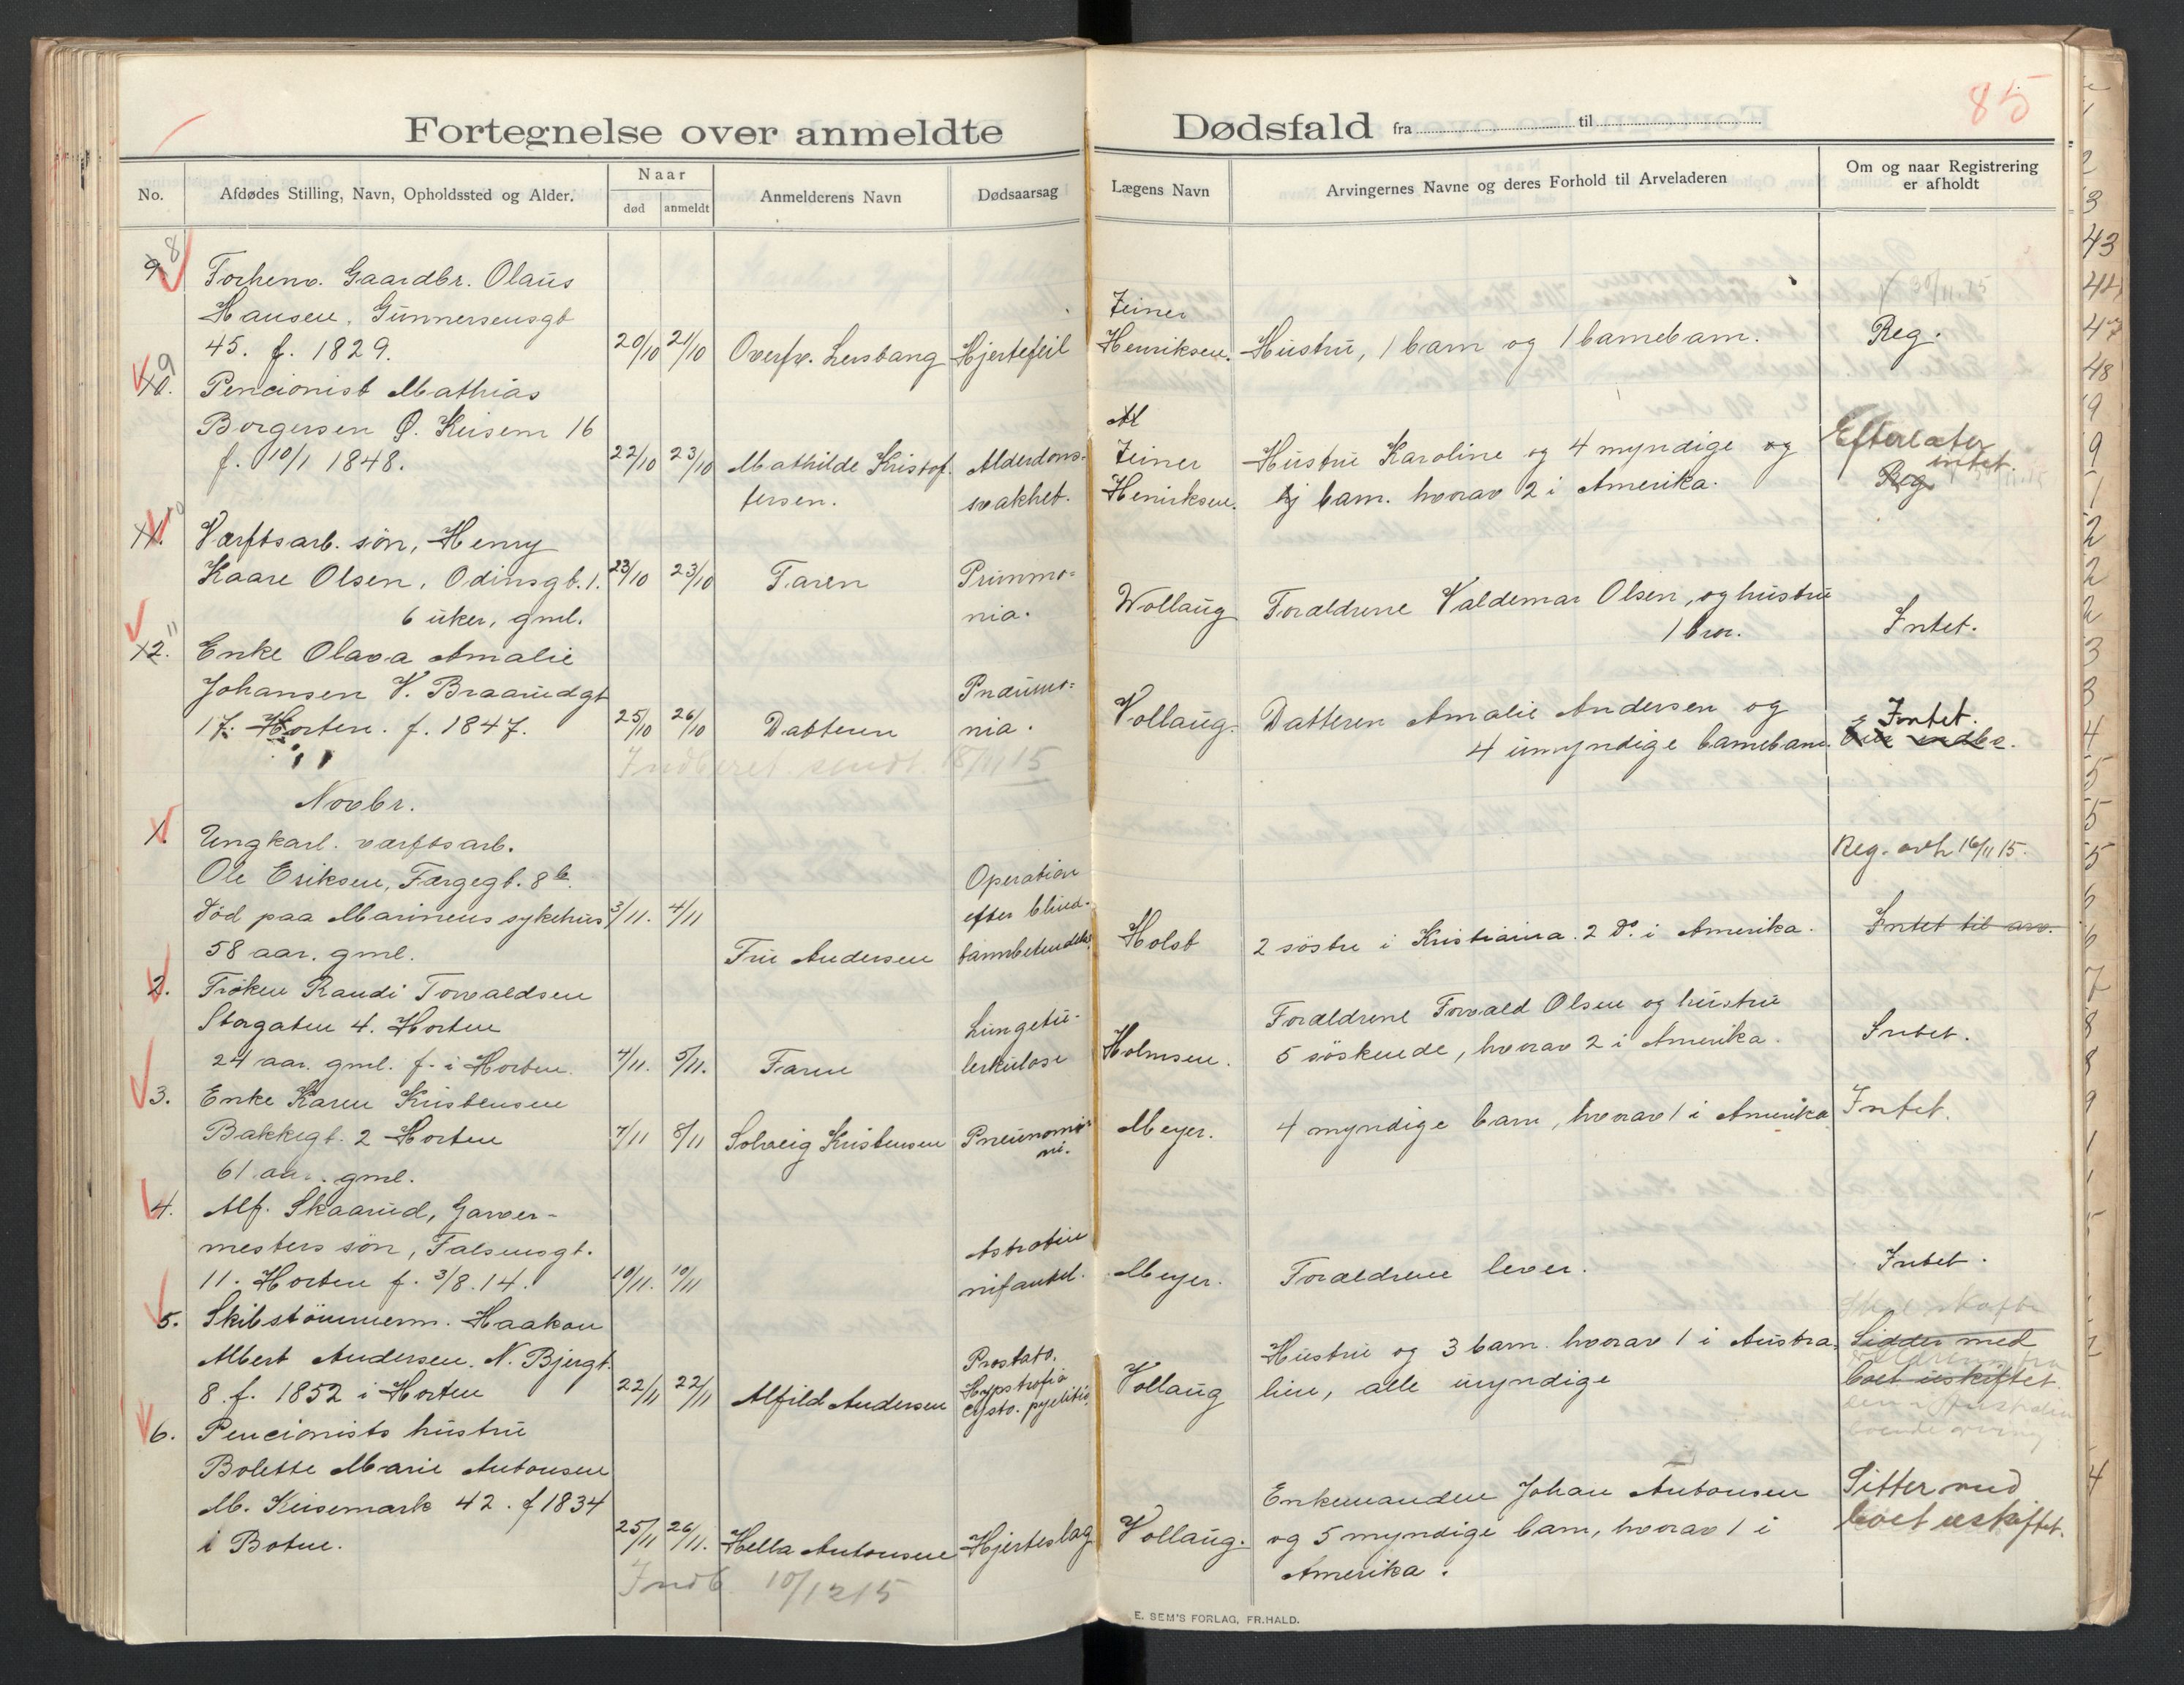 85
Fortegnelse over anmeldte Dødsfald fra til
No.
Afdødes Stilling, Navn, Opholdssted og Alder.
Naar
død
anmeldt
Anmelderens Navn
Dødsaarsag
Lægens Navn
Arvingernes Navne og deres Forhold til Arveladeren
Om og naar Registrering
er afholdt
9. 8
Forhenv. Gaardbr. Olaus
Hansen, Gunnersensgt
45. f. 1829.
20/10
21/10
Overfv. Lersbang
Hjertefeil
Zeiner
Henriksen.
Hustru, 1 barn og 1 barnebarn.
Reg.
10. 9
Pencionist Mathias
Borgersen Ø. Keisem 16
f. 10/1 1848.
22/10
23/10
Mathilde Kristof.
fersen.
Alderdoms-
svakhet.
Zeiner
Henriksen.
Hustru Karoline og 4 myndige og
barn. hvorav 2 i Amerika.
Efterlater
intet.
Reg
11. 10
Værftsarb. søn, Henry
Kaare Olsen, Odinsgt. 1.
6 uker, gml.
23/10
23/10
Faren
Prunmo=
nia.
Wollaug
Forældrene Valdemar Olsen, og hustru
1 bror.
Intet.
12. 11
Enke Olava Amalie
Johansen V. Braarudgt
17. Horten. f. 1847.
25/10
26/10
Datteren
Pnæumo=
nia.
Vollaug.
Datteren Amalie Andersen og
4 umyndige barnebarn.
Intet.
Indberet. sendt. 18/11 15
Novbr.
1.
Ungkarl. værftsarb.
Ole Eriksen, Færgegt. 8 b.
Død paa Marinens sykehus
58 aar. gml.
3/11.
4/11
Fru Andersen
Operation
efter blind-
tarmbetendelse.
Holst
2 søstre i Kristiania. 2 Do. i Amerika.
Reg. avh 16/11 15.
Intet til arv.
2.
Frøken Randi Torvaldsen
Storgaten 4. Horten
24 aar. gml. f. i Horten.
4/11.
5/11.
Faren
Lungetu-
berkulose
Holmsen.
Forældrene Torvald Olsen og hustru
5 søskende, hvorav 2 i Amerika.
Intet.
3.
Enke Karen Kristensen
Bakkegt. 2 Horten
61 aar. gml.
7/11
8/11
Solveig Kristensen
Pneunomo=
ni.
Meyer.
4 myndige barn, hvorav 1 i Amerika
Intet.
4.
Alf. Skaarud, Garver-
mesters søn, Falsensgt.
11. Horten f. 3/8. 14.
10/11.
10/11
Astrotin
nifantil.
Meyer.
Forældrene lever.
Intet.
5.
Skibstømmerm. Haakon
Albert Andersen. N. Bjergt.
8. f. 1852 i Horten
22/11
22/11
Alfild Andersen
Prostato.
Hypstrofia
Cysto. pyelitis.
Vollaug
Hustru og 3 barn. hvorav 1 i Austra
lien, alle myndige
Sidder med
boet uskiftet.
6.
Pencionists hustru
Bolette Marie Antonsen
M. Keisemark 42. f 1834
i Botne.
25/11
26/11.
Hella Antonsen
Hjerteslag
Vollaug.
Enkemanden Johan Antonsen
og 5 myndige barn, hvorav 1 i
Amerika.
Sitter med
boet uskiftet.
Indb. 10/12 15
E. SEM'S FORLAG, FR.HALD.